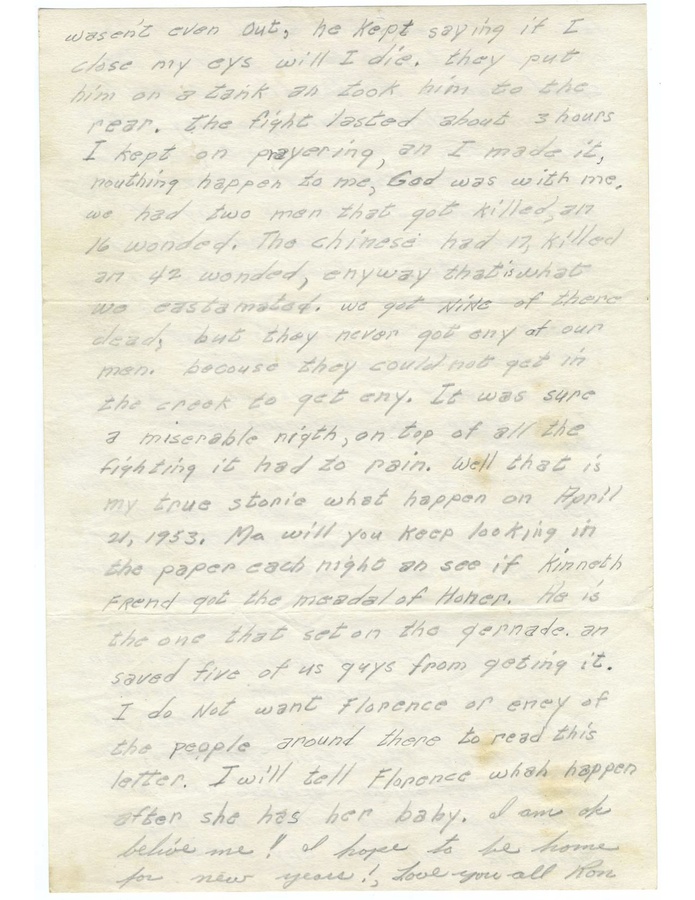 wasen't even out, he kept saying if I
close my eys will I die. they put
him on a tank an took him to the
rear. the fight lasted about 3 hours
I kept on prayering, an I made it,
nouthing happen to me, God was with me.
we had two men that got killed, an
16 wonded. The chinese had 17, killed
an 42 wonded, enyway that's what
we eastamated. we got NiNe of there
dead; but they never got eny of our
men. becouse they could not get in
the creek to get eny. It was sure
a miserable nigth, on top of all the
fighting it had to rain. Well that is
my true storie what happen on April
21, 1953. Ma will you keep looking in
the paper each night an see if Kinneth
FRend got the meadal of Honer. He is
the one that set on the gernade. an
saved five of us guys from geting it.
I do Not want Florence or eney of
the people around there to read this
letter. I will tell Florence whah happen
after she has her baby. I am ok
belive me!! I hope to be home
for new years!, Love you all Ron